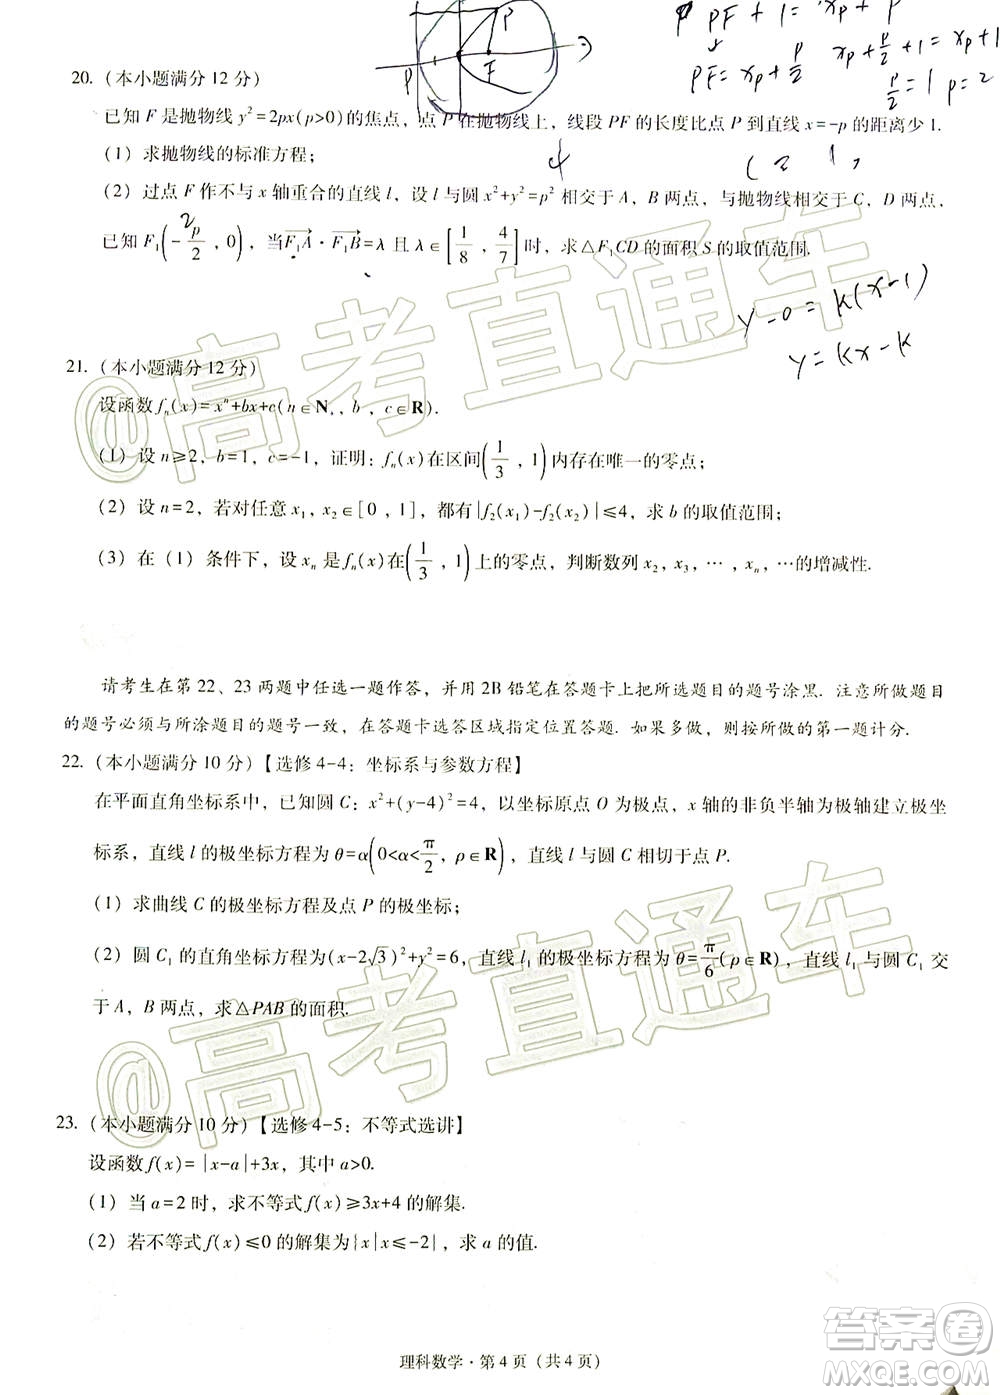 P PF + 1 = xp + P
PF = xp + p/2 xp + p/2 + 1 = xp + 1
p/2 = 1 p = 2
P
P F
20. (本小题满分 12 分)
已知 F 是抛物线 y²=2px(p>0)的焦点, 点 P 在抛物线上, 线段 PF 的长度比点 P 到直线 x=-p 的距离少 1.
(1) 求抛物线的标准方程;
4 ( 2 1,
(2) 过点 F 作不与 x 轴重合的直线 l, 设 l 与圆 x²+y²=p² 相交于 A, B 两点, 与抛物线相交于 C, D 两点,
2
已知 F₁(-p/2, 0), 当F₁A·F₁B=λ 且 λ∈[1/8, 4/7]时, 求△F₁CD 的面积 S 的取值范围.
y-0 = k(x-1)
y = kx - k
21. (本小题满分 12 分)
设函数 fₙ(x)=xⁿ+bx+c(n∈N₊, b, c∈R).
(1) 设 n≥2, b=1, c=-1, 证明: fₙ(x)在区间(1/3, 1)内存在唯一的零点;
(2) 设 n=2, 若对任意 x₁, x₂∈[0, 1], 都有|f₂(x₁)-f₂(x₂)|≤4, 求 b 的取值范围;
(3) 在 (1) 条件下, 设 xₙ 是 fₙ(x)在(1/3, 1)上的零点, 判断数列 x₂, x₃, ⋯, xₙ, ⋯的增减性.
请考生在第 22、23 两题中任选一题作答, 并用 2B 铅笔在答题卡上把所选题目的题号涂黑. 注意所做题目
的题号必须与所涂题目的题号一致, 在答题卡选答区域指定位置答题. 如果多做, 则按所做的第一题计分.
22. (本小题满分 10 分)【选修 4-4: 坐标系与参数方程】
在平面直角坐标系中, 已知圆 C: x²+(y-4)²=4, 以坐标原点 O 为极点, x 轴的非负半轴为极轴建立极坐
标系, 直线 l 的极坐标方程为 θ=α(0<α<π/2, ρ∈R), 直线 l 与圆 C 相切于点 P.
(1) 求曲线 C 的极坐标方程及点 P 的极坐标;
(2) 圆 C₁ 的直角坐标方程为 (x-2√3)²+y²=6, 直线 l₁ 的极坐标方程为 θ=π/6(ρ∈R), 直线 l₁ 与圆 C₁ 交
于 A, B 两点, 求△PAB 的面积.
23. (本小题满分 10 分)【选修 4-5: 不等式选讲】
设函数 f(x)=|x-a|+3x, 其中 a>0.
(1) 当 a=2 时, 求不等式 f(x)≥3x+4 的解集.
(2) 若不等式 f(x)≤0 的解集为{x|x≤-2}, 求 a 的值.
理科数学·第 4 页 (共 4 页)
@高考直通车
@高考直通车
答案圈
MXQE.COM